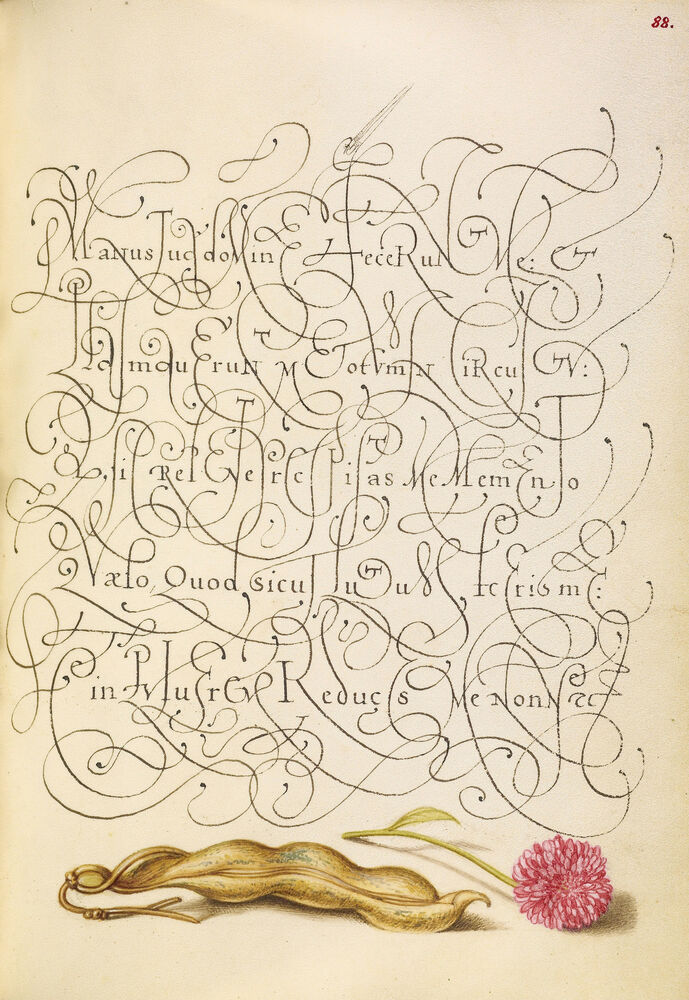 88.
Manus Tuę domine Fecerunt Me: et
Plasmauerunt me totum in circuitu:
& sic Repente præcipitas me Memento
Quæso, Quod sicut lutum feceris me:
& in Puluerem Reduces me nonne